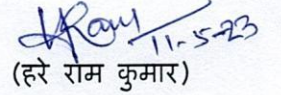 HRam
11-5-23
(हरे राम कुमार)